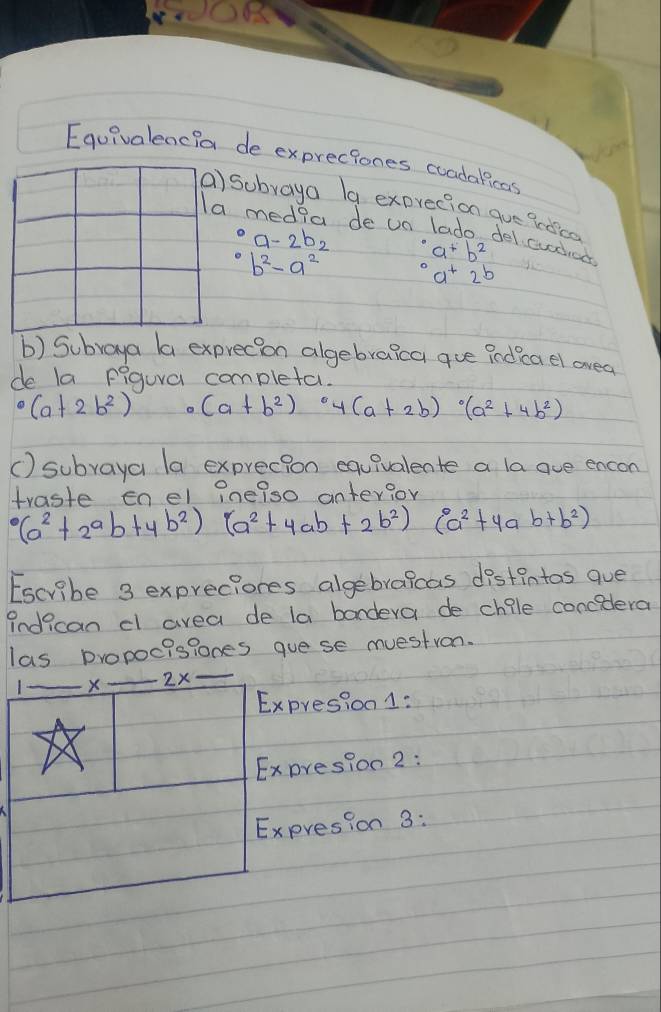 Equivalencia de expreciones cuadaticas
a) Subraya la exprecion que indica
la media de un lado del cuadrado
• a-2b₂ • a+b²
• b²-a² • a+ 2b
b) Subraya la exprecion algebraica que indica el area
de la figura completa.
•(a+2b²) •(a+b²) •4(a+2b) •(a²+4b²)
c) subraya la exprecion equivalente a la que encon
traste en el ineiso anterior
•(a²+2ab+4b²) •(a²+4ab+2b²) •(a²+4ab+b²)
Escribe 3 expreciones algebraicas distintas que
indican el area de la bandera de chile concidera
las propocisiones que se muestran.
1 — x — 2x —
Expresion 1:
Expresion 2:
Expresion 3: